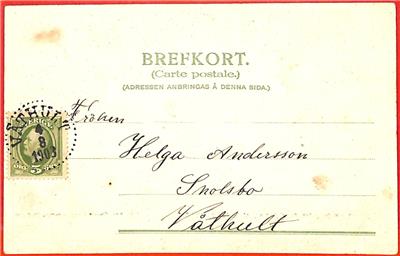 BREFKORT.
(Carte postale.)
(ADRESSEN ANBRINGAS Å DENNA SIDA.)
VÅTHULT
4
8
1903
SVERIGE
5
Fröken
Helga Andersson
Snolsbo
Våthult